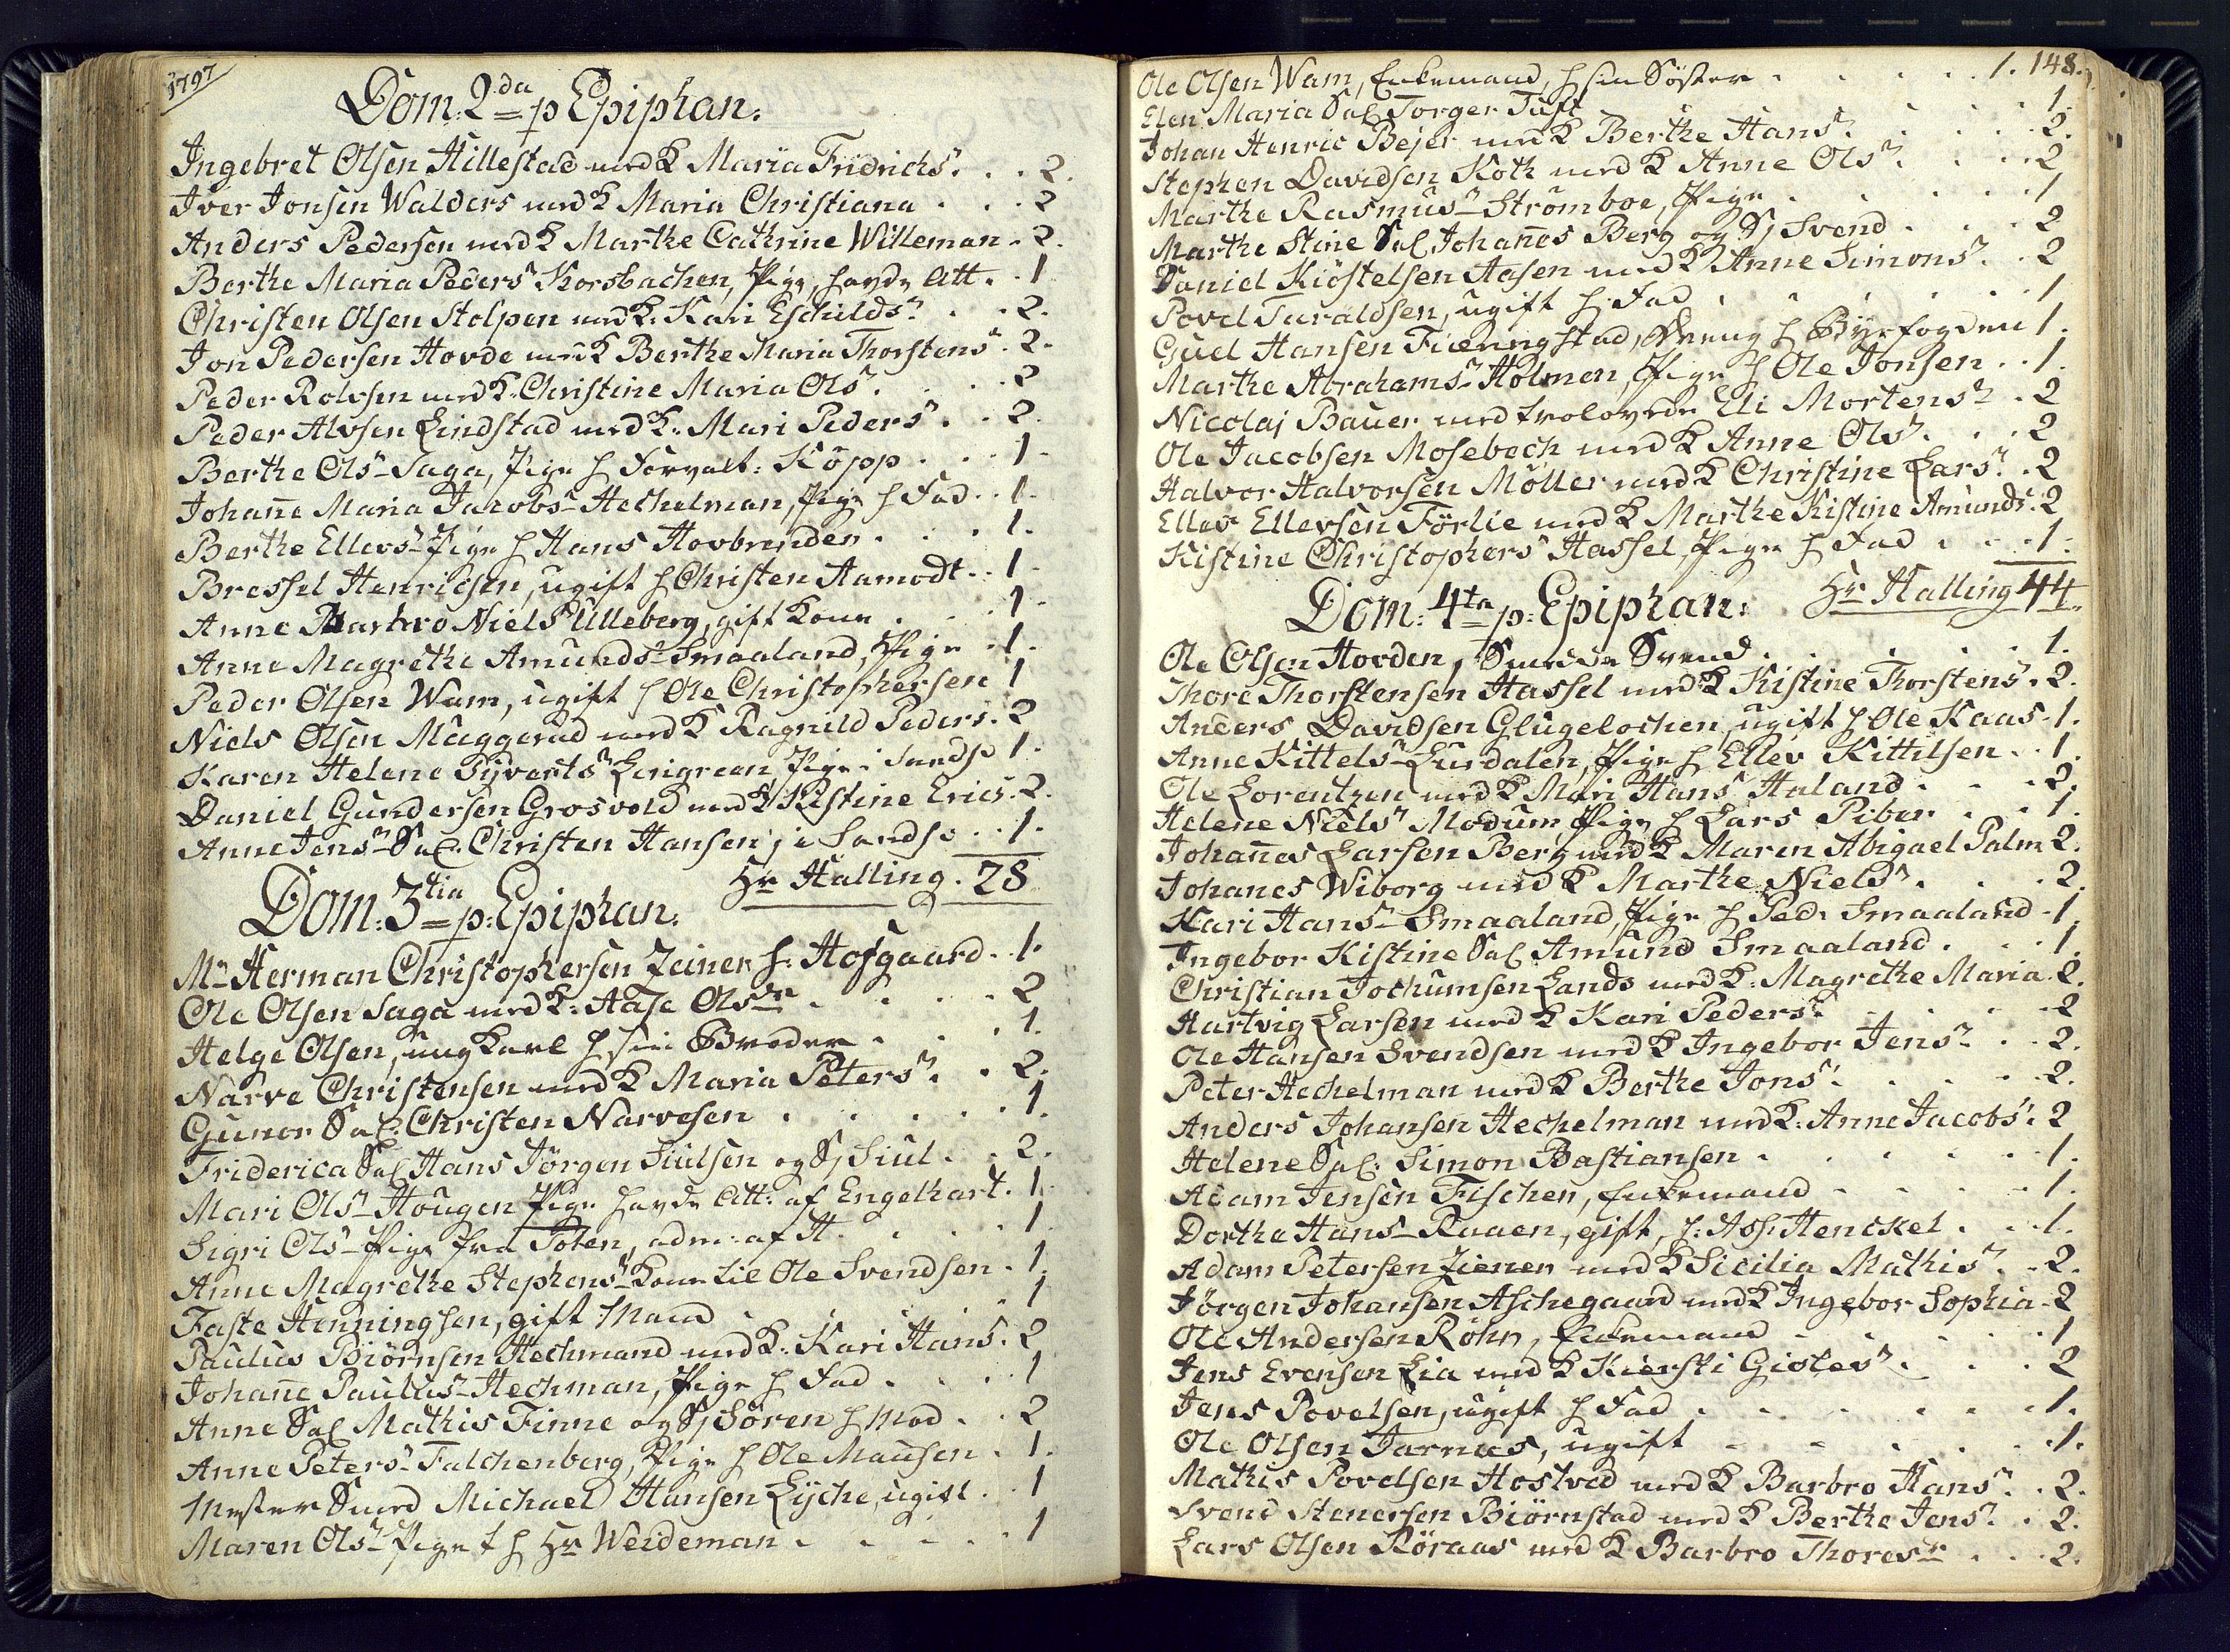 1797
Dom: 2da p Epiphan:
Ingebret Olsen Hillestad med K Maria Fridrichs. . . 2.
Iver Jonsen Walders med K Maria Christiana . . . 2
Anders Pedersen med K Marthe Cathrine Willeman . 2.
Berthe Maria Peders Korsbachen, Pige, havde Att . . 1
Christen Olsen Stolpen med K. Kari Eschilds . . 2.
Jon Pedersen Hovde med K Berthe Maria Thorstens . 2.
Peder Rolvsen med K. Christine Maria Ols. . . . 2
Peder Alvsen Lindstad med K. Mari Peders . . . 2.
Berthe Ols Saga, Pige h Forvalt: Köpp . . . 1.
Johañe Maria Jacobs Hechelman, Pige h Fad . . 1.
Berthe Ellevs Pige h Hans Hovbrenden . . . 1.
Bressel Henrichsen, ugift h Christen Aamodt . . 1.
Anne Barbro Niels Ulleberg, gift Kone . . . 1.
Anne Magrethe Amunds Smaaland, Pige . 1.
Peder Olsen Wam, ugift h Ole Christophersen 1
Niels Olsen Muggerud med K Ragnild Peders. 2
Karen Helene Syverts Lengreen, Pige i Sandsv 1.
Daniel Gundersen Grosvold med K Kistine Erics. 2.
Anne Jens Sal. Christen Hansen, i Sandsv . . 1.
Hr Halling . 28
Dom: 3tia p: Epiphan:
Mr Herman Christophersen Zeiner h: Hofgaard . . 1.
Ole Olsen Saga med K: Aase Olsdr . . . . 2
Helge Olsen, ung Karl h sin Broder . . . 1.
Narve Christensen med K Maria Peters . . 2.
Gunor Sal: Christen Narvesen . . . . . 1.
Friderica Sal Hans Jörgen Siulsen og S Siul . . 2.
Mari Ols Hougen Pige havde Att: af Engelhart. 1.
Sigri Ols Pige fra Toten, adm: af H . . . 1
Anne Magrethe Stephens Kone til Ole Svendsen . 1.
Faste Henningsen, gift Mand . . . . 1
Paulus Biörnsen Hechmand med K. Kari Hans. 2
Johañe Paulus Hechman, Pige h Fad . . . 1
Anne Sal Mathis Finne og S Sören h Mod . . 2
Anne Peters Falchenberg, Pige h Ole Mausen . 1.
Mester Smed Michael Hansen Lyche, ugift . . 1
Maren Ols Pige t h Hr Weideman . . . . 1
148.
Ole Olsen Wam, Enkemand, h sin Söster . . . . . 1.
Elen Maria Sal Torger Tuft . . . . 1.
Johan Henric Bejer med K Berthe Hans . . . . 2.
Stephen Davidsen Koth med K Anne Ols . . . . 2
Marthe Rasmus Stromboe, Pige . . . . 1
Marthe Stine Sal Johañes Berg og S Svend . . . 2
Daniel Kiöstelsen Aasen med K Anne Simons . . 2
Povel Taraldsen, ugift h: Fad . . . . . 1
Guel Hansen Fieringstad, Dreng h Byefogden 1.
Marthe Abrahams Holmen, Pige h Ole Jonsen . . 1.
Nicolaj Bauer med trolovede Eli Mortens . 2
Ole Jacobsen Mosebech med K Anne Ols . . . 2
Halvor Halvorsen Möller med K Christine Lars . 2
Ellev Ellevsen Förlie med K Marthe Kistine Amunds . 2
Kistine Christophers Hassel, Pige h Fad . . . 1.
Hr Halling 44
Dom: 4ta p: Epiphan:
Ole Olsen Hovden, Smede Svend . . . . . 1.
Thore Thorstensen Hassel med K Kistine Thorstens . 2.
Anders Davidsen Glugelochen, ugift h Ole Kaas . 1.
Anne Kittels Lurdalen, Pige h Ellev Kittilsen . . 1.
Ole Lorentzen med K Mari Hans Haland . . . 2.
Helene Niels Modum, Pige h Lars Piber . . . 1.
Johañes Larsen Berg med K Maren Abigael Palm 2.
Johanes Wiborg med K Marthe Niels . . . . 2.
Kari Hans Smaaland, Pige h Ped: Smaaland . 1.
Ingebor Kistine Sal Amund Smaaland . . . 1.
Christian Jochumsen Lands med K: Magrethe Maria . 2.
Hartvig Larsen med K Kari Peders . . . . 2
Ole Hansen Svendsen med K Ingebor Jens . . 2.
Peter Hechelman med K Berthe Jons . . . . 2.
Anders Johansen Hechelman med K: Anne Jacobs . 2
Helene Sal: Simon Bastiansen . . . . . 1.
Adam Jensen Fischer, Enkemand . . . . 1.
Dorthe Hans Ruuen, gift, h: Ass: Henckel . . . 1.
Adam Petersen Ziener med K Sicilia Mathis . . 2.
Jörgen Johansen Aschegaard med K Ingebor Sophia . 2
Ole Andersen Röhr, Enkemand . . . . . 1
Jens Evensen Lia med K Kiersti Gioles . . . 2
Jens Povelsen, ugift h Fad . . . . . 1.
Ole Olsen Tarnæs, ugift . . . . . 1.
Mathis Povelsen Hostved med K Barbro Hans . . 2.
Svend Stenersen Biörnstad med K Berthe Jens . . 2.
Lars Olsen Röraas med K Barbro Thores . . . 2.